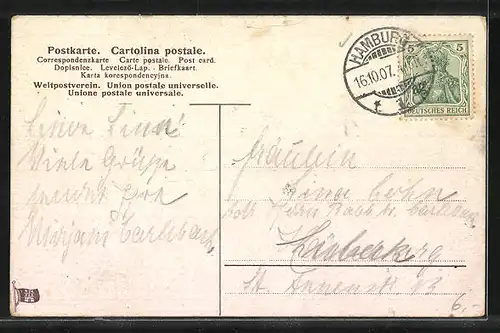 Postkarte. Cartolina postale.
Correspondenzkarte Carte postale. Post card.
Dopisnice. Levelező-Lap. Briefkaart.
Karta korespondencyjna.
Weltpostverein. Union postale universelle.
Unione postale universale.
HAMBURG
16.10.07.
5 5
DEUTSCHES REICH
Liebe Lina!
Viele Grüsse
sendet
Mirjam Carlebach
Fräulein
Lina Cohn
Herrn Carlebach
Lübeck
St. Annenstr
6.-